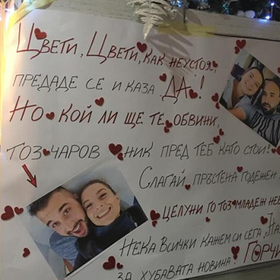 ЦВЕТИ, ЦВЕТИ, КАК НЕУСТОЯ,
ПРЕДАДЕ СЕ И КАЗА ДА!
НО КОЙ ЛИ ЩЕ ТЕ ОБВИНИ,
ТОЗ ЧАРОВНИК ПРЕД ТЕБ КАТО СТОИ!
СЛАГАЙ ПРЪСТЕНА ГОДЕНЕН
ЦЕЛУНИ ГО ТОЗ МЛАДЕН
НЕКА ВСИЧКИ КАЖЕМ СЕГА
ЗА ХУБАВАТА НОВИНА ГОРЧИ